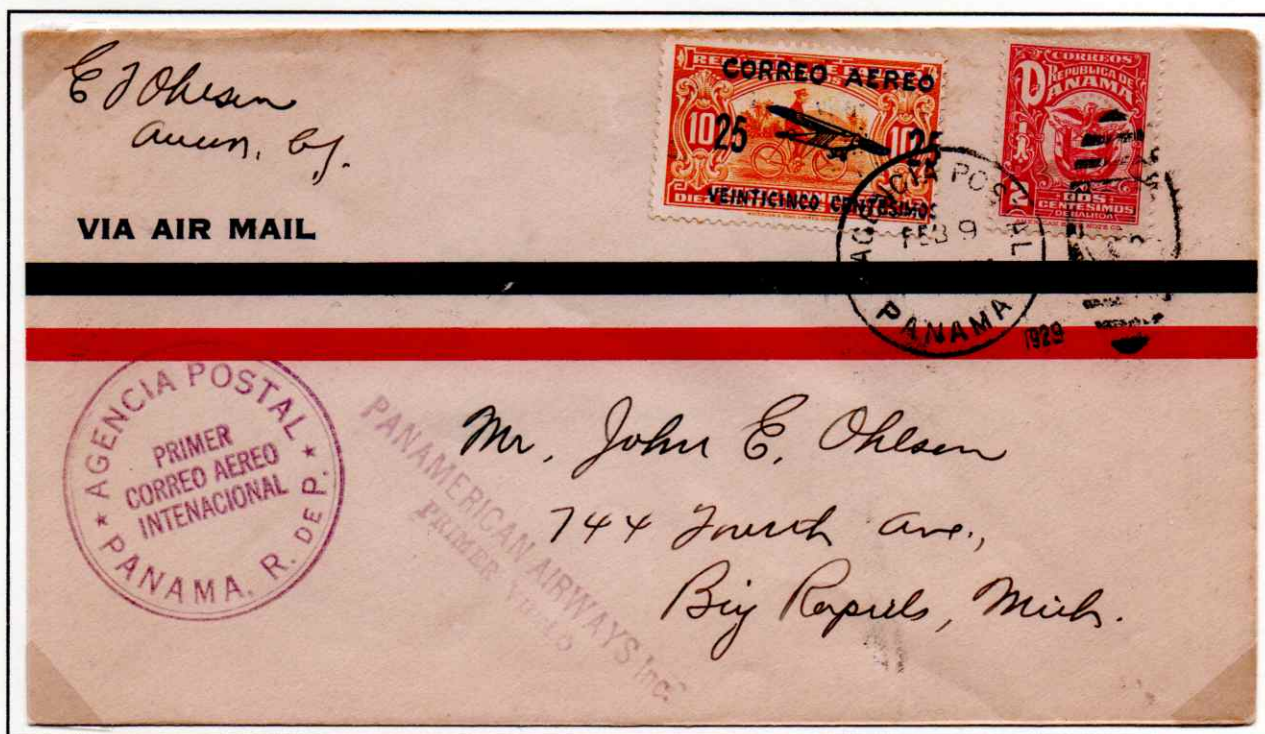 E J Ohlsen
Ancon, C.Z.
VIA AIR MAIL
CORREO AEREO
10 25 10 25
VEINTICINCO CENTESIMOS
CORREOS
REPUBLICA DE
PANAMA
2 DOS
CENTESIMOS
DE BALBOA
AGENCIA POSTAL
FEB 9
PANAMA
1929
AGENCIA POSTAL
PRIMER
CORREO AEREO
INTENACIONAL
PANAMA, R. DE P.
PANAMERICAN AIRWAYS Inc.
PRIMER VUELO
Mr. John E. Ohlsen
744 Fourth Ave.,
Big Rapids, Mich.